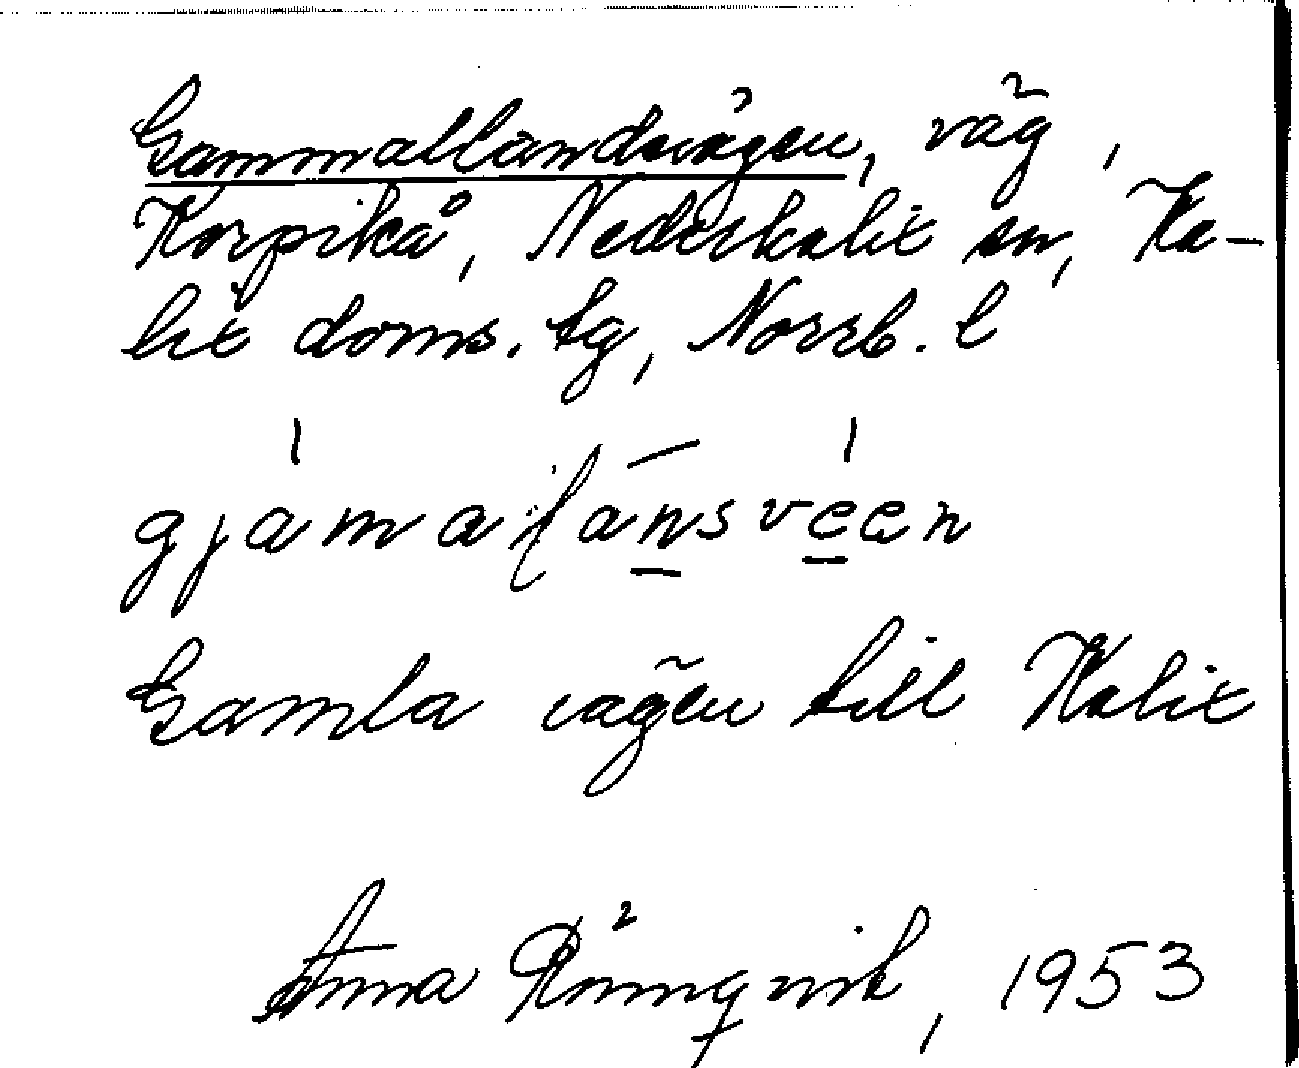 Gammallandsvägen, väg,
Korpikå, Nederkalix sn, Ka-
lix doms. tg, Norrb. l
gjámalánsvéen
Gamla vägen till Kalix
Anna Rönnqvik, 1953